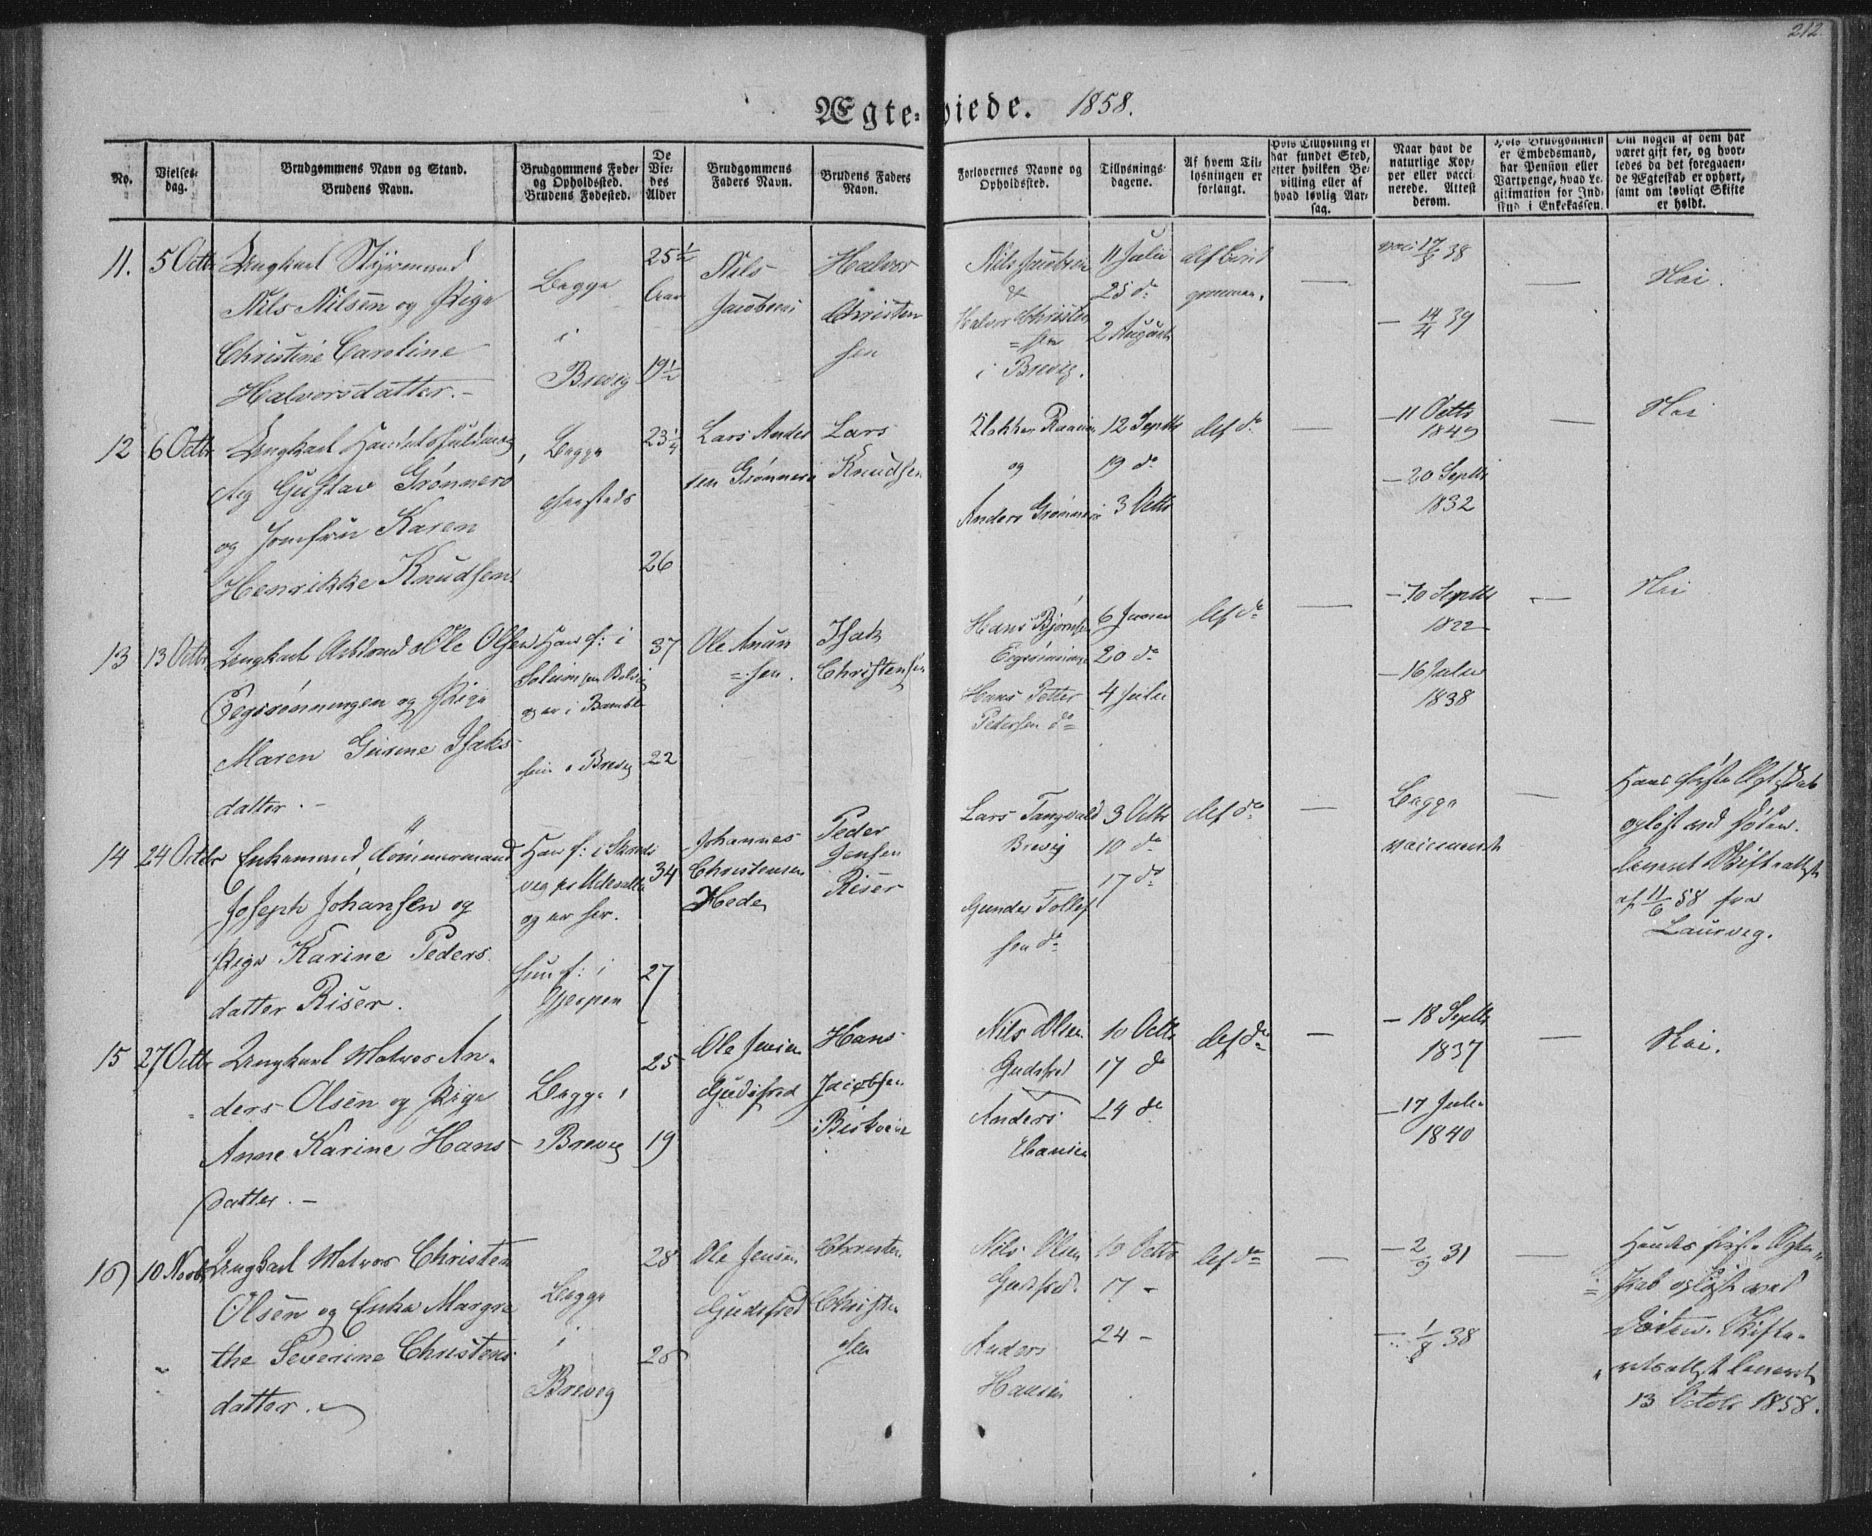 212.
Ægte-viede. 1858.
No.
Vielses-
dag.
Brudgommens Navn og Stand.
Brudens Navn.
Brudgommens Føde-
og Opholdssted.
Brudens Fødested.
De
Vie-
des
Alder
Brudgommens
Faders Navn.
Brudens Faders
Navn.
Forlovernes Navne og
Opholdssted.
Tillysnings-
dagene.
Af hvem Til-
lysningen er
forlangt.
Hvis Tillysning ei
har fundet Sted,
efter hvilken Be-
villing eller af
hvad lovlig Aar-
sag.
Naar havt de
naturlige Kop-
per eller vacci-
nerede. Attest
derom.
Hvis Brudgommen
er Embedsmand,
har Pension eller
Vartpenge, hvad Le-
gitimation for Ind-
skud i Enkekassen.
Om nogen af dem har
været gift før, og hvor-
ledes da det foregaaen-
de Ægteskab er ophørt,
samt om lovligt Skifte
er holdt.
11. 5 Octbr Ungkarl Styrmand
Nils Nilsen og Pige
Christine Caroline
Halvorsdatter. -
Begge
i
Brevig
25 1/2
Aar
19 1/2
Nils
Jacobsen
Halvor
Christen
sen
Nils Jacobsen
&
Halvor Christen
=sen
i Brevig.
11 Julii
25 do
2 August
—
vac 17/6 38
— 14/4 39
Nei.
12 6 Octbr Ungkarl
Gustav Grønnerø
og Jomfru Karen
Henrikke Knudsen
Begge
23 1/4
26
Lars Ander
sen Grønnerø
Lars
Knudsen
Klokker
og
Anders Grønnerø
12 Septbr
19 do
3 Octbr
—
—11 Octbr
1849
—20 Septbr
1832
—
Nei
13 13 Octbr Ungkarl Ole Olsen
og Pige
Maren Gurine Isaks-
datter. -
Han f: i
og er i Bamble
hun i Brevig
37
22
Ole Anun
=sen.
Isak
Christensen
Hans Bjørnsen
Hans Petter
Pedersen do
6 Juni
20 do
4 Julii
—
—10 Septbr
1822
—16 Julii
1838
—
Nei
14 24 Octbr Enkemand Tømmermand
Joseph Johansen og
Pige Karine Peders
datter Riser.
Han f: i
og er her.
hun f: i
Gjerpen
34
27
Johannes
Christensen
Hede
Peder
Jensen
Riser
Lars Tangvald
Brevig
Gunder Tollef
sen do
3 Octbr
10 do
17 do
—
Begge
vaccinerede
—
Hans første Ægteskab
opløst ved Døden.
Leveret Skifteattest
af 11/6 58 fra
Laurvig.
15 27 Octbr Ungkarl Halvor An-
ders Olsen og Pige
Anne Karine Hans-
datter. -
Begge i
Brevig
25
19
Ole Jensen
Gudsfred
Hans
Jacobsen
Nils Olsen
Gudsfred
Anders
Hansen
10 Octbr
17 do
24 do
—
— 18 Septbr
1837
—17 Juli
1840
—
Nei.
16) 10 Novbr Ungkarl Halvor Christen
Olsen og Enke Margre
the Severine Christens
datter.
Begge
i
Brevig
28
26
Ole Jensen
Gudsfred
Christen
Christen
sen
Nils Olsen
Gudsfred.
Anders
Hansen
10 Octbr
17 -
24 -
—
— 2/9 31
— 1/8 38
—
Hendes første Ægte=
=skab opløst ved
Døden. Skifte-
retsattest leveret
13 Octobr 1858.